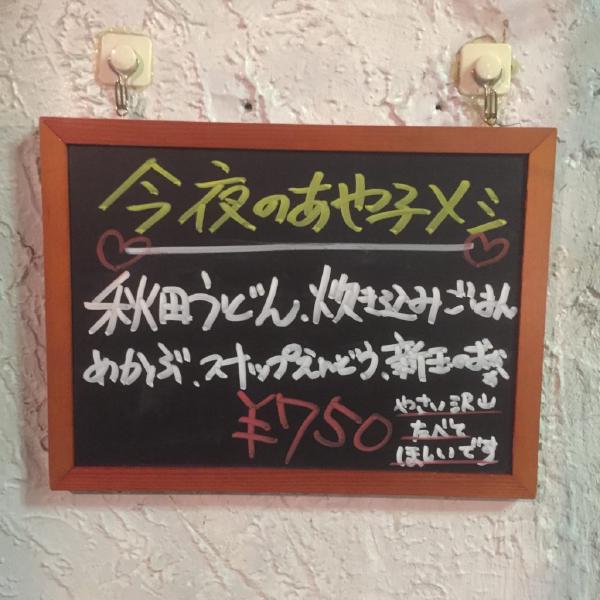 今夜のあや子メシ
秋田うどん、炊き込みごはん
めかぶ、スナップえんどう、新玉のおかず
¥750
やさい沢山
たべて
ほしいです